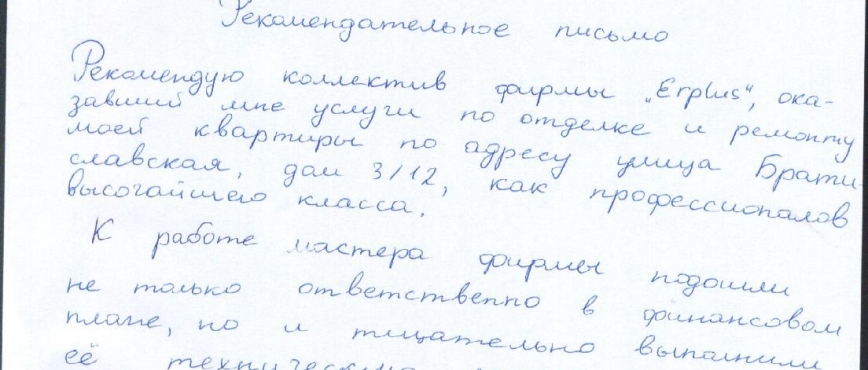 Рекомендательное письмо
Рекомендую коллектив фирмы „Erplus“, ока-
завший мне услуги по отделке и ремонту
моей квартиры по адресу улица Брати-
славская, дом 3/12, как профессионалов
высочайшего класса.
К работе мастера фирмы подошли
не только ответственно в финансовом
плане, но и тщательно выполнили
её